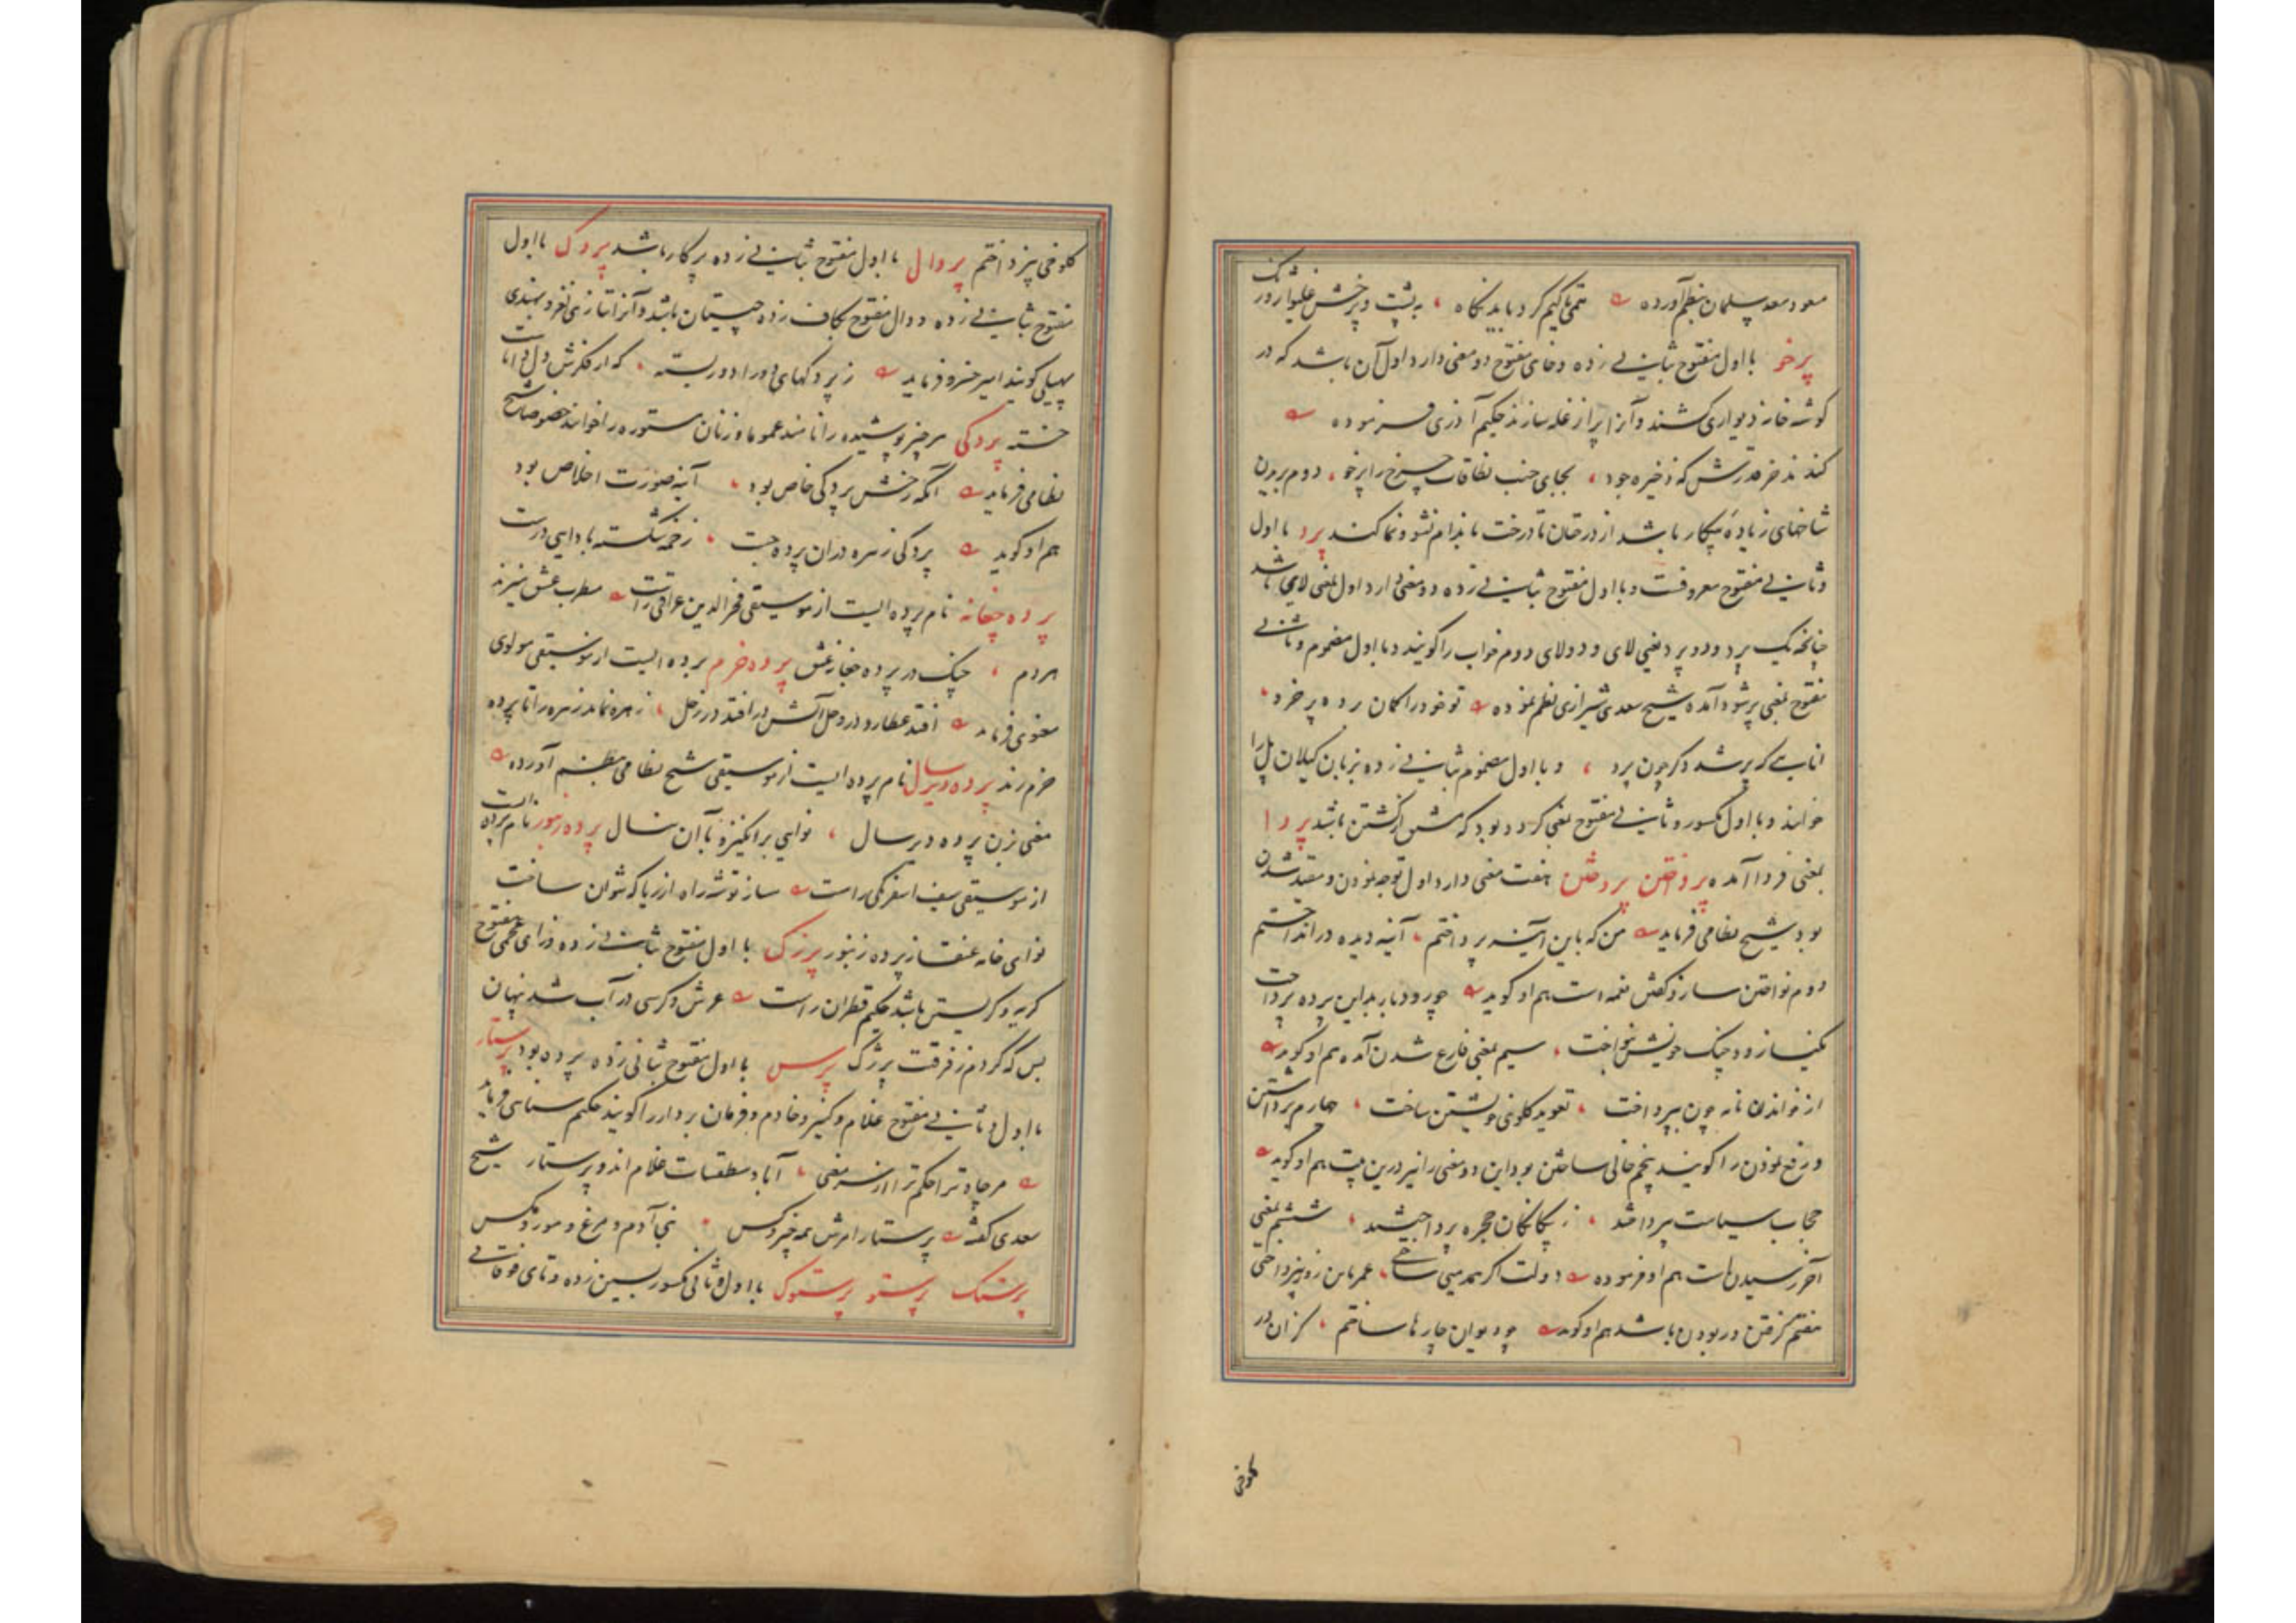 مسعود سعد سلمان بنظم آورده
پرخو با اول مفتوح بثانی زده و خای مفتوح دو معنی دارد اول آن باشد که در
گوشه خانه دیواری کشند و آنرا پر از غله سازند حکیم آذری فرموده
که ذخیره جود بجای حنب نطاقات چرخ را پرخو دوم بریدن
شاخهای زیاده بیکار باشد از درختان تا درخت باندام نشو و نما کند پرد با اول
و ثانی مفتوح معروفست و با اول مفتوح بثانی زده دو معنی دارد اول بمعنی لای باشد
چنانچه یک پرد و دو پرد یعنی لای و دولای دوم خواب را گویند و با اول مضموم و ثانی
مفتوح بمعنی پر شود آمده شیخ سعدی شیرازی نظم نموده تو خود را گمان برده پر خرد
انایی که پر شد دگر چون پرد و با اول مضموم بثانی زده بزبان گیلان پل را
خوانند و با اول مکسور و ثانی مفتوح بمعنی گردد بود که مشتق از گشتن باشد پردا
بمعنی فردا آمده پرداختن پردختن هفت معنی دارد اول توجه نمودن و مقید شدن
بود شیخ نظامی فرماید من که باین آینه پرداختم آینه دیده درانداختم
دوم نواختن ساز و گفتن نغمه است هم او گوید چو رود باربد این پرده پرداخت
نکیسا زود چنگ خویش بنواخت سیم بمعنی فارغ شدن آمده هم او گوید
از خواندن نامه چون بپرداخت تعویذ گلوی خویشتن ساخت چهارم برداشتن
و رفع نمودن را گویند پنجم خالی ساختن بود این دو معنی را نیز درین بیت هم او گوید
حجاب سیاست پرداختند ز بیگانگان حجره پرداختند ششم بمعنی
آخر رسیدن است هم او فرموده دولت اگر همدمی ساختی عمر باین روز نپرداختی
هفتم گرفتن و ربودن باشد هم او گوید چو دیوان چارها ساختم کزان در
گلوخی
گلوخی بپرداختم پردال با اول مفتوح بثانی زده پرکار باشد پردک با اول
مفتوح بثانی زده و دال مفتوح بکاف زده چیستان باشد و آنرا بتازی لغز و بهندی
پهیلی گویند امیر خسرو فرماید ز پردکهای دور ادور بسته که از فکرش دل دانا ست
خسته پردگی هر چیز پوشیده را نامند عموما و زنان مستوره را خوانند خصوصا شیخ
نظامی فرماید آنکه رخش پردگی خاص بود آینه صورت اخلاص بود
هم او گوید پردگی زهره دران پرده جست زخمه شکسته بادایی درست
پرده چغانه نام پرده ایست از موسیقی فخر الدین عراقی راست مطرب عشق میزند
هردم چنگ در پرده چغانه عشق پرده خرم پرده ایست از موسیقی مولوی
معنوی فرماید افتد عطارد در وحل آتش درافتد در زحل زهره نماند زهره را تا پرده
خرم زند پرده دیرسال نام پرده ایست از موسیقی شیخ نظامی بنظم آورده
مغنی بزن پرده دیرسال نوایی برانگیز با آن بنال پرده زنبور نام پرده ایست
از موسیقی سیف اسفرنگی راست ساز توشه راه از ریا که نتوان ساخت
نوای خانه عنقا ز پرده زنبور پرزک با اول مفتوح بثانی زده و زای عجمی مفتوح
گریه و گریستن باشد حکیم قطران راست عرش و کرسی در آب شد پنهان
بس که کردم ز فرقت پرژک پرس با اول مفتوح بثانی زده پرده بود پرستار
با اول و ثانی مفتوح غلام و کنیز و خادم و فرمان بردار را گویند حکیم سنایی فرماید
مر جاه ترا حکم ترا از سر معنی آباد سطقسات غلام اند و پرستار شیخ
سعدی گفته پرستار امرش همه چیز و کس بنی آدم و مرغ و مور و مگس
پرستک پرستو پرستوک با اول و ثانی مکسور بسین زده و تای فوقانی